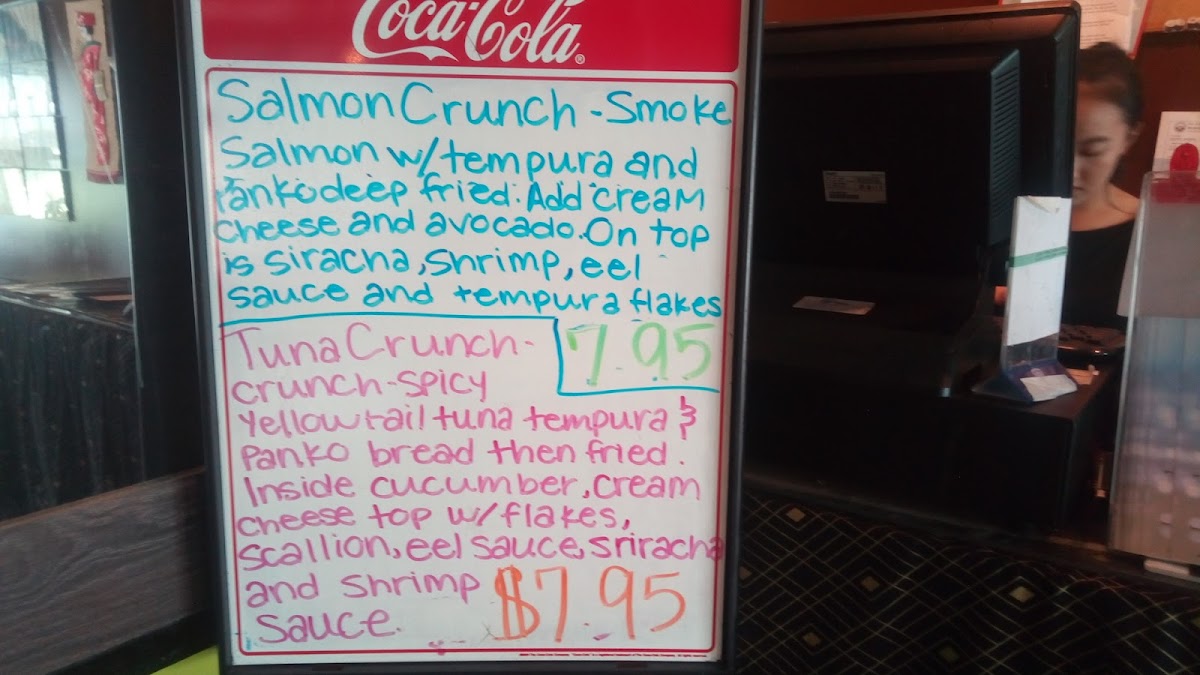 Coca-Cola
Salmon Crunch - Smoke
Salmon w/ tempura and
Panko deep fried. Add cream
cheese and avocado. On top
is siracha, shrimp, eel
sauce and tempura flakes
7.95
Tuna Crunch -
crunch-spicy
yellowtail tuna tempura &
Panko bread then fried.
Inside cucumber, cream
cheese top w/ flakes,
scallion, eel sauce, sriracha
and shrimp
sauce.
$7.95